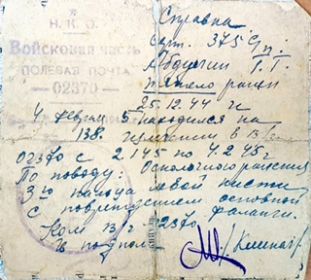 Н. К. О.
Войсковая часть
ПОЛЕВАЯ ПОЧТА
— 02370 —
Справка
серж. 375 сп:
Абдулин Г. Г.
тяжело ранен
25.12.44 г
4 5 находился на
излечении в
02370 с 2 1 45 по 4.2 45 г.
По поводу: Осколочного ранения
3го пальца левой кисти
с повреждением основной
фаланги.
Ком в/ч 02370